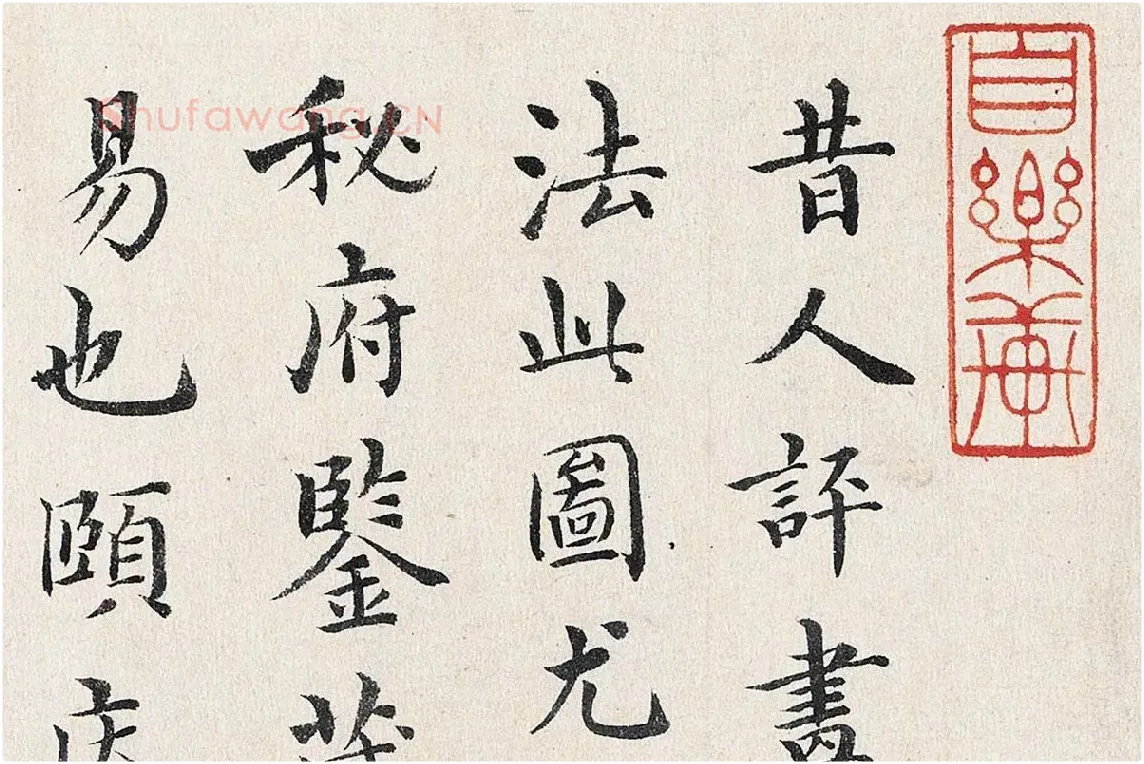 自樂
昔人評
法此圖尤
秘府鑒
易也頤
Shufawang.CN